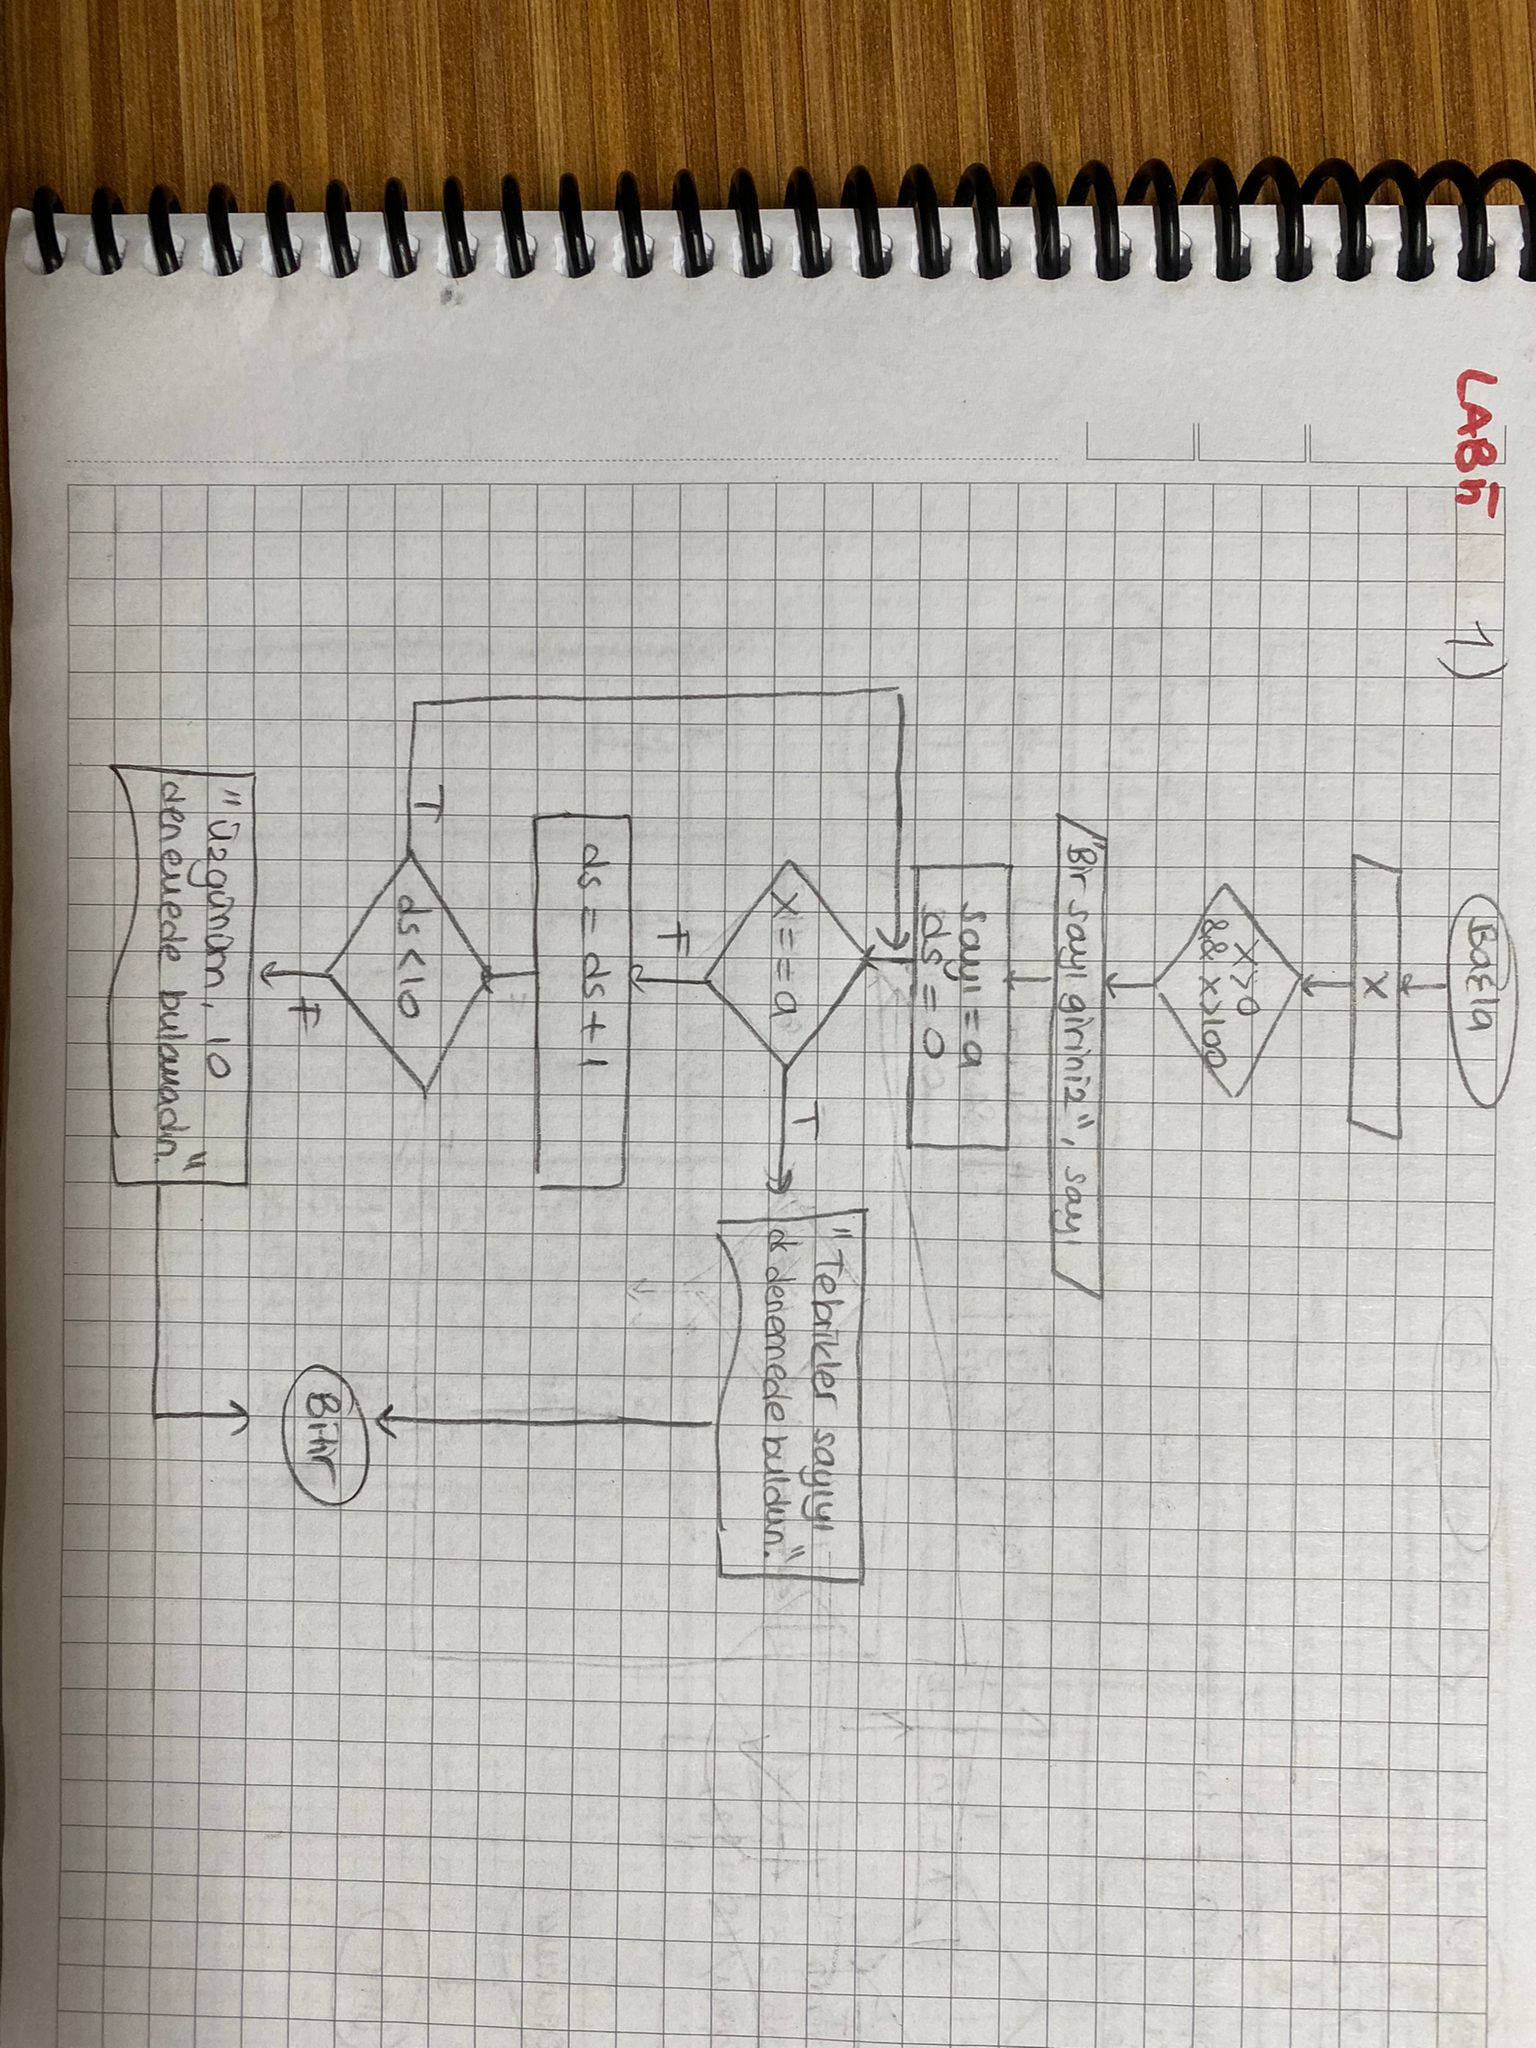 LAB5
1)
Başla
X
X>0
&& x>100
"Bir sayı giriniz", sayı
sayı = a
ds = 0
x == a
T
"Tebrikler sayıyı
ds denemede buldun."
F
ds = ds + 1
ds < 10
T
F
"Üzgünüm, 10
denemede bulamadın."
Bitir